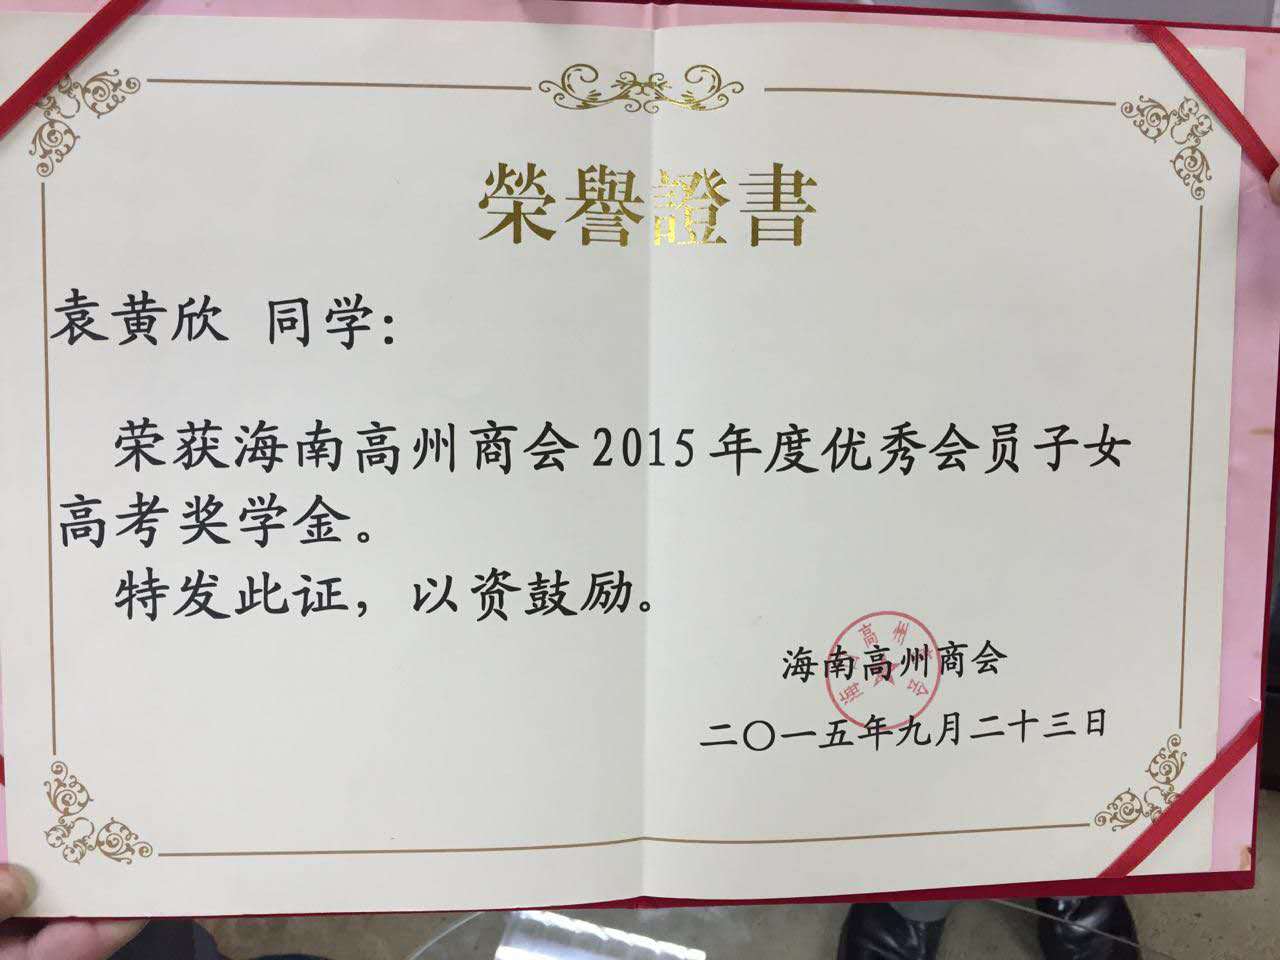 榮譽證書
袁黄欣 同学：
荣获海南高州商会2015年度优秀会员子女
高考奖学金。
特发此证，以资鼓励。
海南高州商会
海南高州商会
二〇一五年九月二十三日